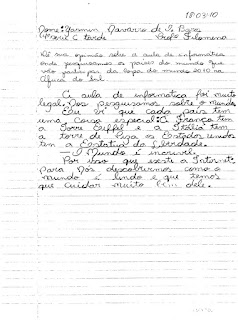 18.03.10
Nome: Yasmin Navarro de S. Bara
4ª série C tarde Profª Filomena
Dê sua opinião sobre a aula de informática
onde pesquisamos os países do mundo que
vão participar da copa do mundo 2010 na
África do Sul.
A aula de informática foi muito
legal. Nós pesquisamos sobre o mundo.
Eu vi que cada país tem
uma coisa especial: A França tem
a Torre Eiffel e a Itália tem
a torre de Pisa os Estados unidos
tem a Estátua da Liberdade.
O Mundo é incrível.
Por isso que existe a Internet:
Para Nós descobrirmos como o
mundo é lindo e que temos
que cuidar muito dele.